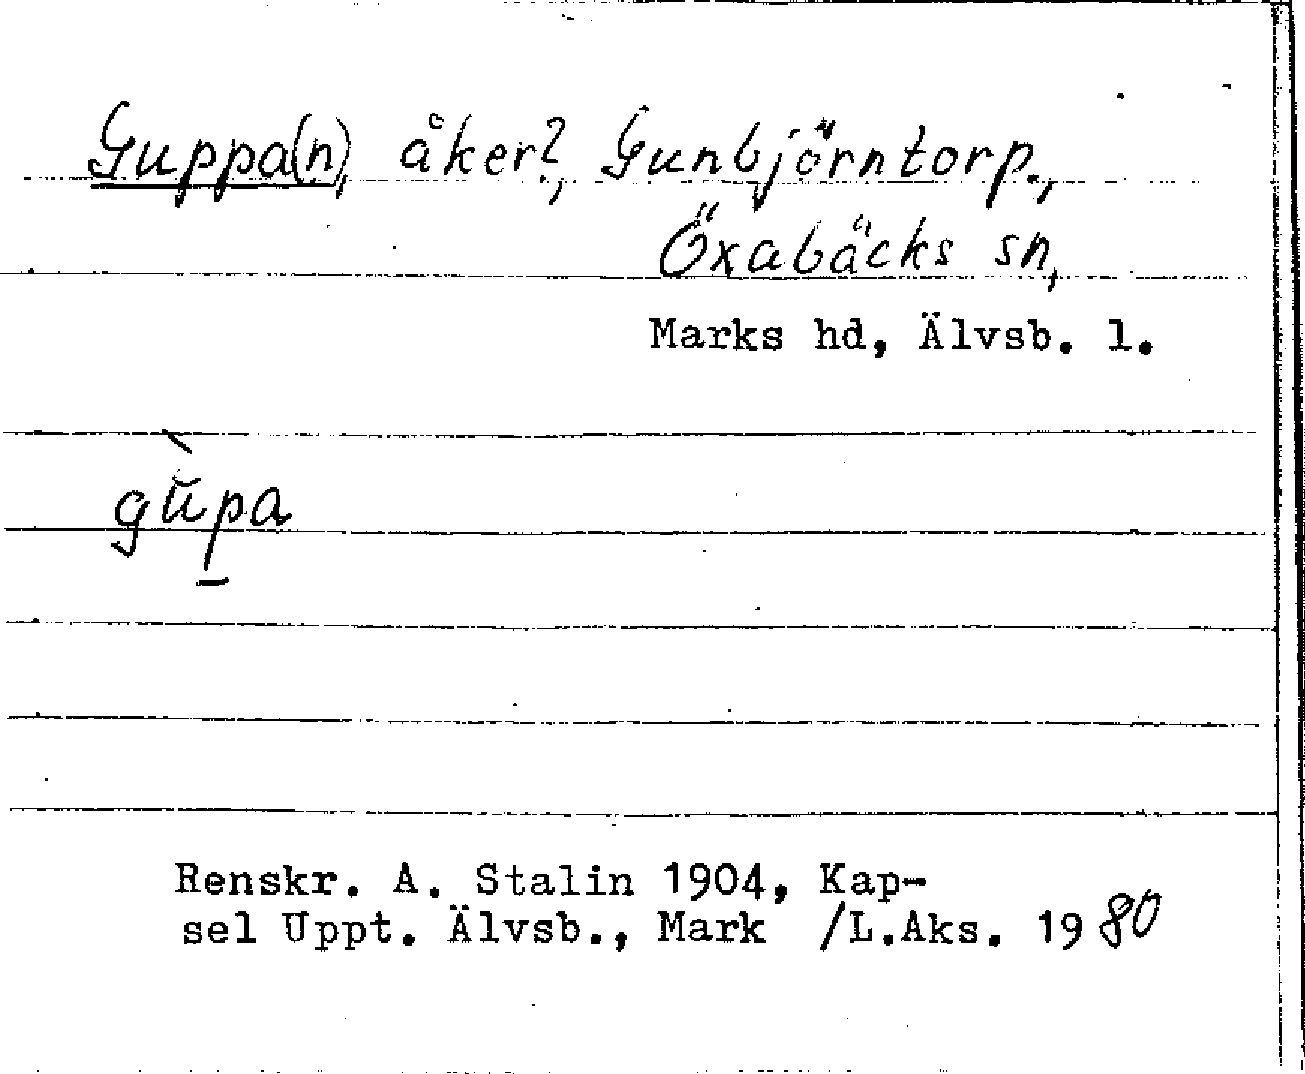 Guppa(n), åker?, Gunbjörntorp.,
Öxabäcks sn,
Marks hd, Älvsb. l.
gŭ̀pa̲
Renskr. A. Stalin 1904, Kap-
sel Uppt. Älvsb., Mark /L.Aks. 1980